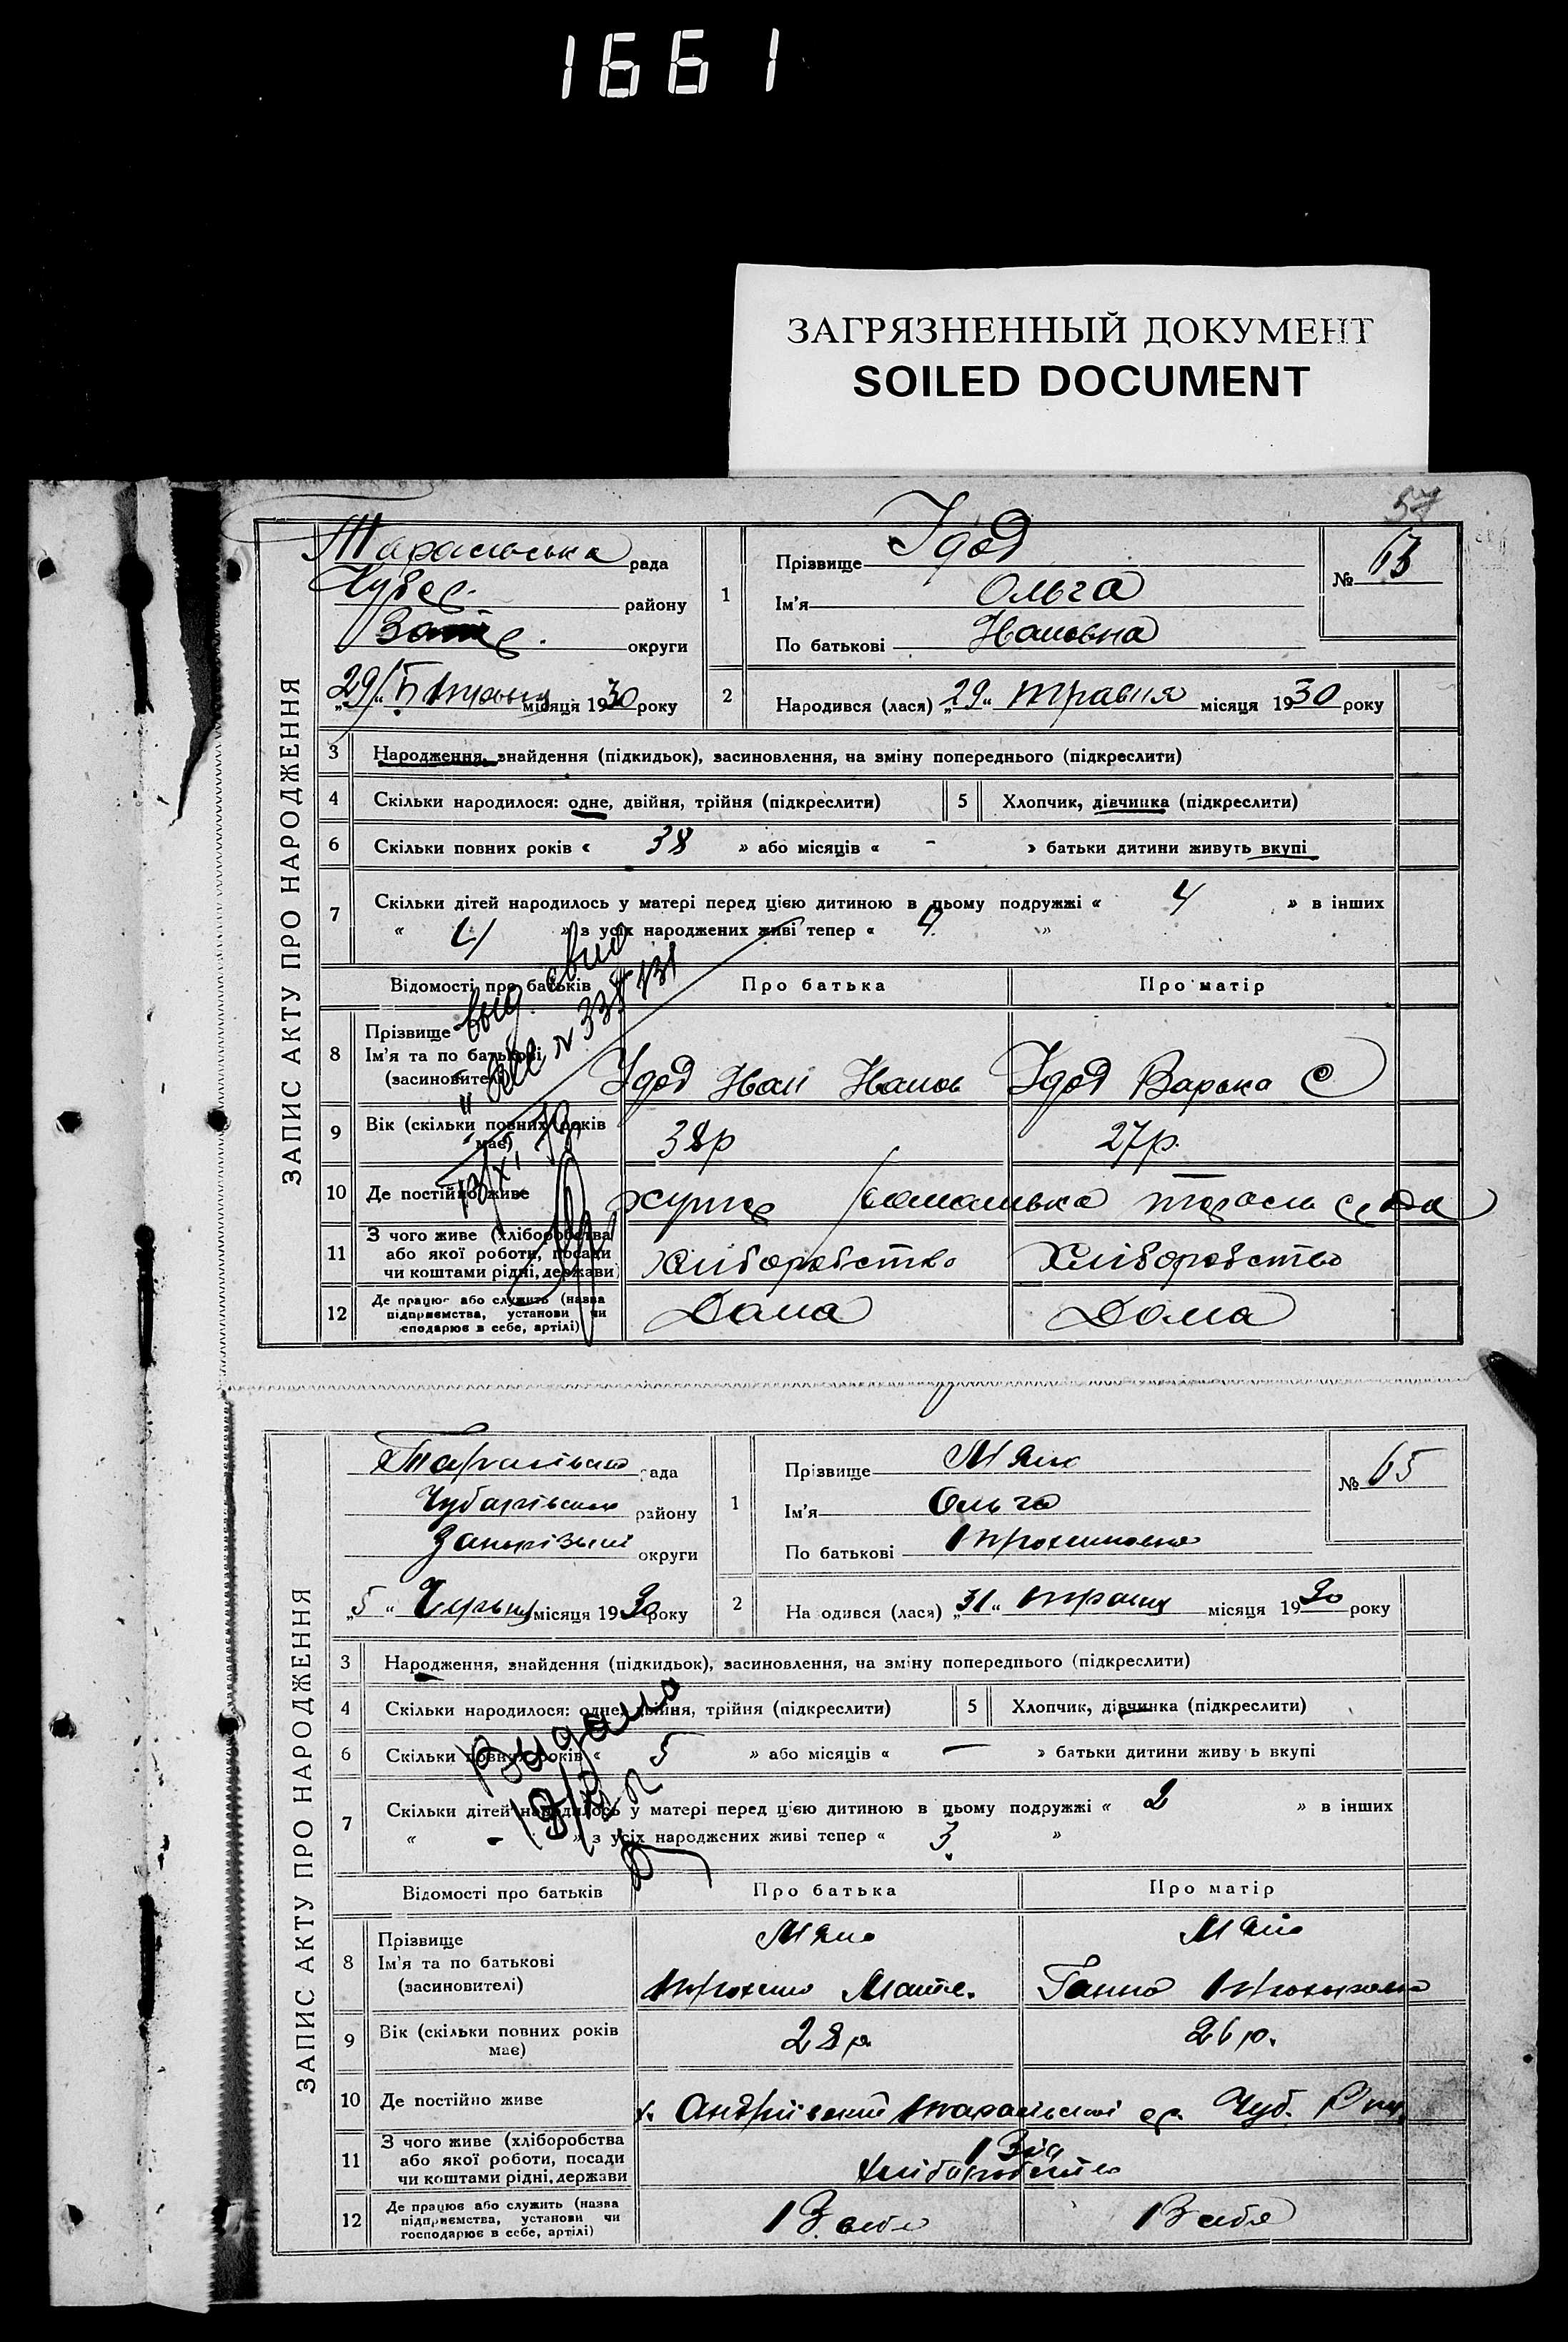 1661
ЗАГРЯЗНЕННЫЙ ДОКУМЕНТ
SOILED DOCUMENT
57
ЗАПИС АКТУ ПРО НАРОДЖЕННЯ
рада
району
округи
29/5 місяця 1930 року
1 Прізвище Удод
Ім'я Ольга
По батькові Івановна
№ 63
2 Народився (лася) „29" травня місяця 1930 року
3 Народження, знайдення (підкидьок), засиновлення, на зміну попереднього (підкреслити)
4 Скільки народилося: одне, двійня, трійня (підкреслити) 5 Хлопчик, дівчинка (підкреслити)
6 Скільки повних років « 38 » або місяців « - » батьки дитини живуть вкупі
7 Скільки дітей народилось у матері перед цією дитиною в цьому подружжі « 4 » в інших
« 4 » з усіх народжених живі тепер « 4 »
Відомості про батьків Про батька Про матір
8 Прізвище
Ім'я та по батькові
(засиновителі) Удод Иван Иванов Удод Варька С
9 Вік (скільки повних років
має) 38р 27р.
10 Де постійно живе
11 З чого живе (хліборобства
або якої роботи, посади
чи коштами рідні, держави) хліборобство Хліборобство
12 Де працює або служить (назва
підприємства, установи чи
сподарює в себе, артілі) Дома Дома
выд. свид
№ 338131
ЗАПИС АКТУ ПРО НАРОДЖЕННЯ
Тарасівська рада
Чубарівського району
округи
„5" Червня місяця 1930 року
1 Прізвище
Ім'я Ольга
По батькові Трохимовна
№ 65
2 На одився (лася) „31" травня місяця 1930 року
3 Народження, знайдення (підкидьок), засиновлення, на зміну попереднього (підкреслити)
4 Скільки народилося: одне, двійня, трійня (підкреслити) 5 Хлопчик, дівчинка (підкреслити)
6 Скільки повних років « » або місяців « — » батьки дитини живу ь вкупі
7 Скільки дітей народилось у матері перед цією дитиною в цьому подружжі « 2 » в інших
« - » з усіх народжених живі тепер « 3 »
Видано
Відомості про батьків Про батька Про матір
8 Прізвище
Ім'я та по батькові
(засиновителі) Трохим Матв. Ганна
9 Вік (скільки повних років
має) 28р. 26 р.
10 Де постійно живе х. Андріівський Чуб.
11 З чого живе (хліборобства
або якої роботи, посади
чи коштами рідні, держави хліборобство
12 Де працює або служить (назва
підприємства, установи чи
господарює в себе, артілі) В себе В себя